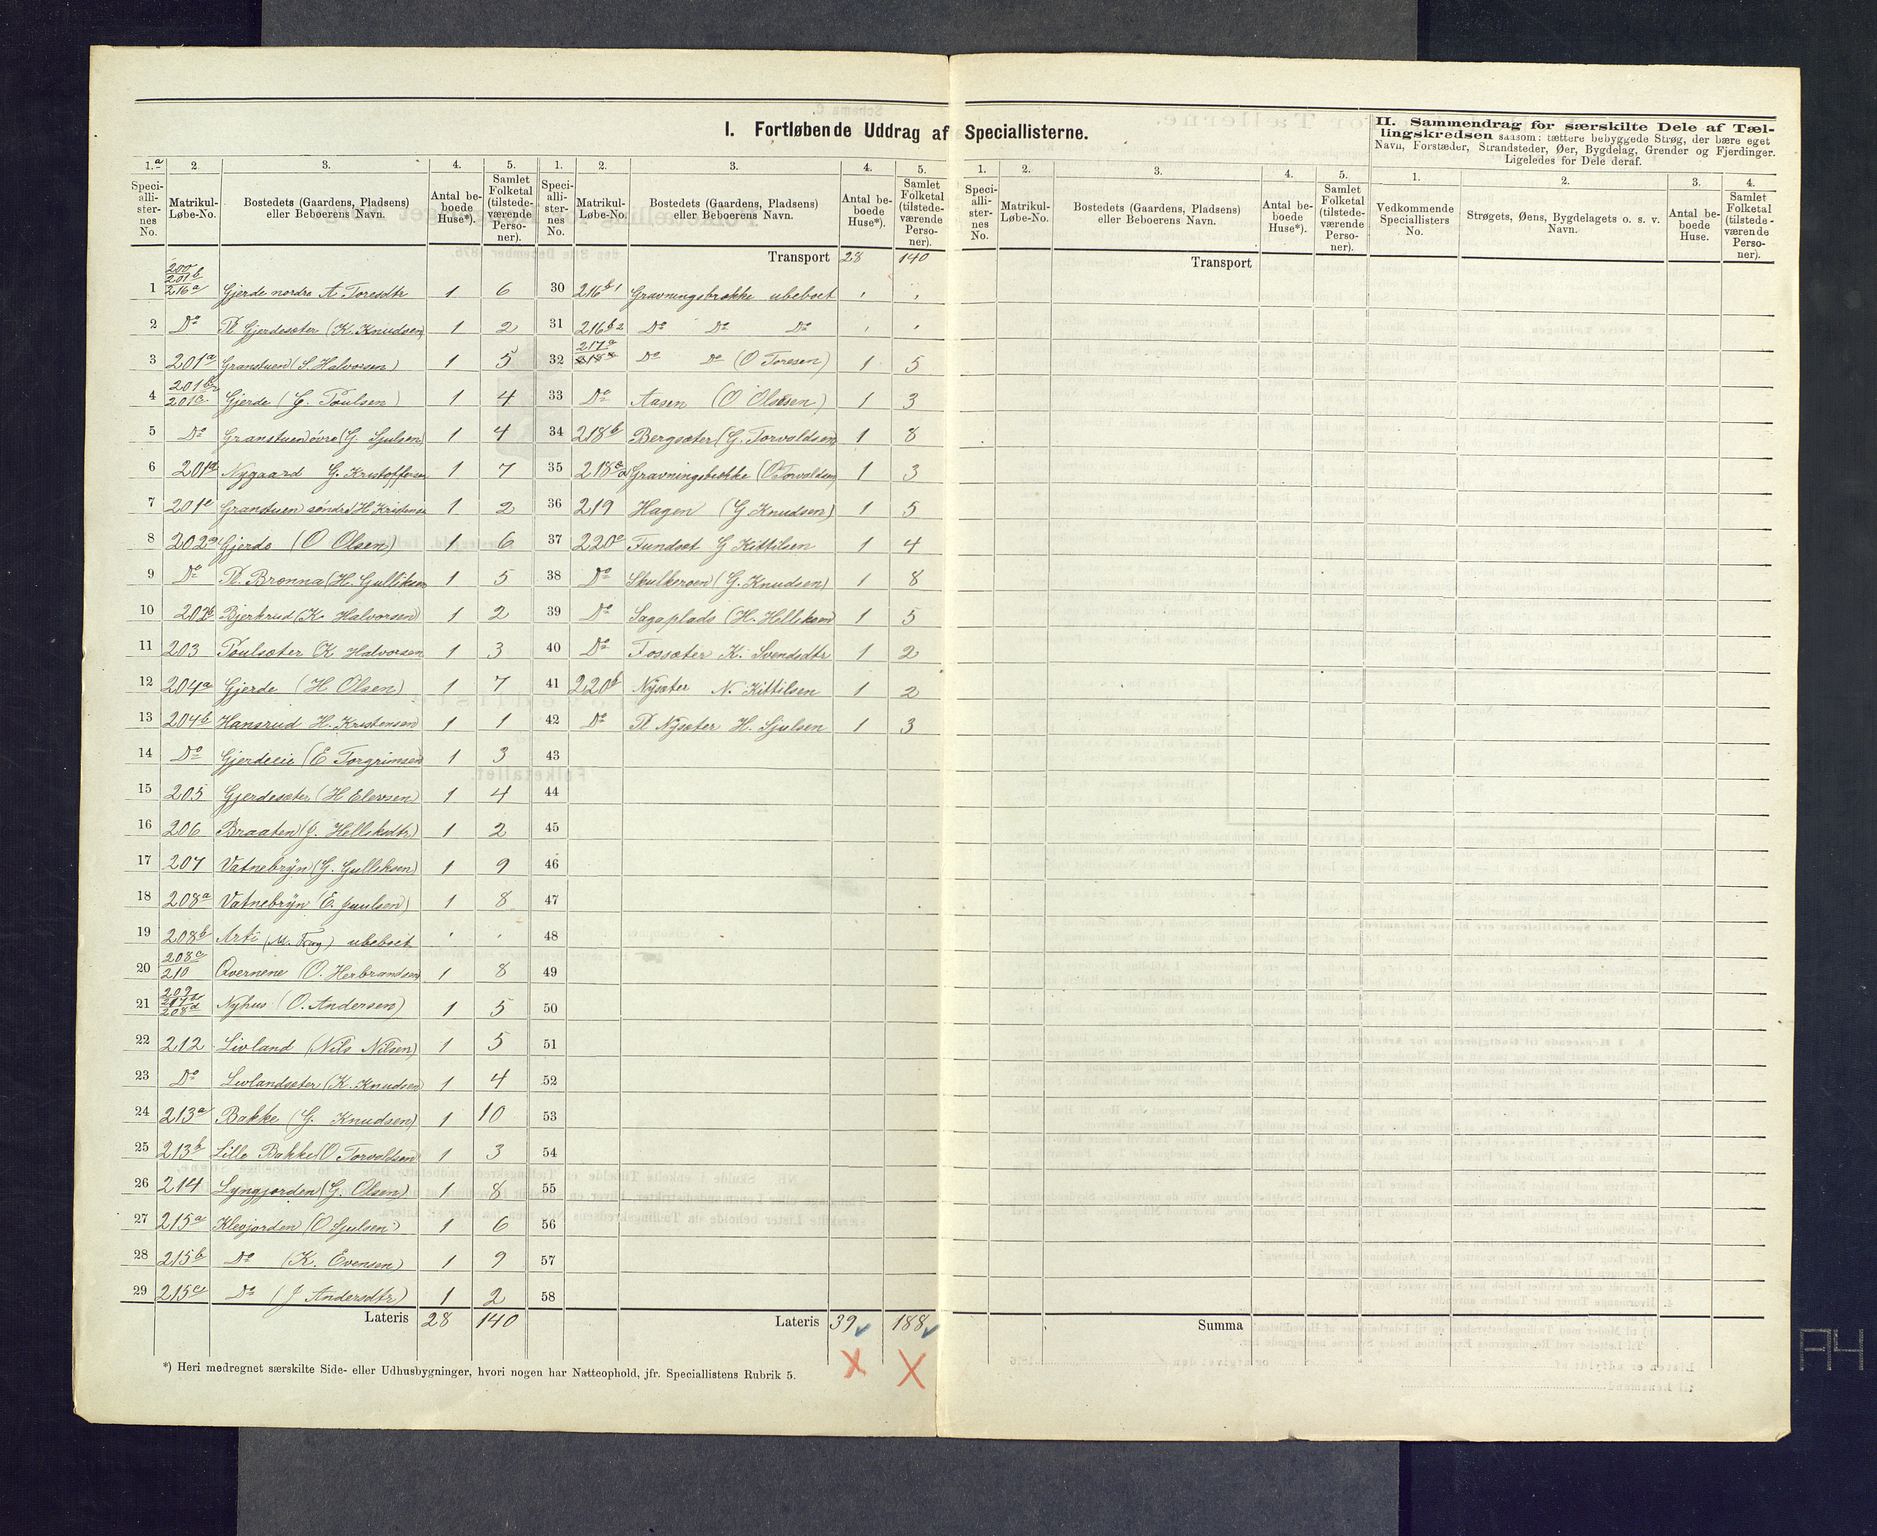 I. Fortløbende Uddrag af Speciallisterne.
II. Sammendrag for særskilte Dele af Tællingskredsen saasom: tættere bebyggede Strøg, der bære eget Navn, Forstæder, Strandsteder, Øer, Bygdelag, Grender og Fjerdinger. Ligeledes for Dele deraf.
1.a 2. 3. 4. 5. 1. 2. 3. 4. 5. 1. 2. 3. 4. 5. 1. 2. 3. 4.
Speciallisternes No. Matrikul-Løbe-No. Bostedets (Gaardens, Pladsens) eller Beboerens Navn. Antal beboede Huse*). Samlet Folketal (tilstedeværende Personer).
Speciallisternes No. Matrikul-Løbe-No. Bostedets (Gaardens, Pladsens) eller Beboerens Navn. Antal beboede Huse*). Samlet Folketal (tilstedeværende Personer).
Speciallisternes No. Matrikul-Løbe-No. Bostedets (Gaardens, Pladsens) eller Beboerens Navn. Antal beboede Huse*). Samlet Folketal (tilstedeværende Personer).
Vedkommende Speciallisters No. Strøgets, Øens, Bygdelagets o. s. v. Navn. Antal beboede Huse. Samlet Folketal (tilstedeværende Personer).
1 200 201b 216a Gjerde nordre A Toresdtr 1 6
2 Do Pl Gjerdesæter (K. Knudsen) 1 2
3 201a Granstuen (S. Halvorsen) 1 5
4 Gjerde (C. Poulsen) 1 4
5 Do Granstuen øvre (G. Sjulsen) 1 4
6 201d Nygaard G. Kristoffersen 1 7
7 201e Granstuen søndre H Kristensen 1 2
8 202a Gjerde (O Olsen) 1 6
9 Do Pl. Brønna (H. Gulliksen 1 5
10 202b Bjerkrud (K. Halvorsen) 1 2
11 203 Poulsæter (K Halvorsen 1 3
12 204a Gjerde (H Olsen) 1 7
13 204b Hansrud H. Kristensen 1 1
14 Do Gjerdeeie (E Torgrimsen 1 3
15 205 Gjerdesæter (H Elevsen) 1 4
16 206 Braaten (J. Helliksdtr) 1 2
17 207 Vatnebrÿn (G. Gulliksen) 1 9
18 208a Vatnebrÿn (E. Juulsen) 1 8
19 208b Arti ubeboet " "
20 208c 210 Qvernene (O. Herbrandsen 1 8
21 209 208d Nyhus (O. Andersen) 1 5
22 212 Livland (Nils Nilsen) 1 5
23 Do Livlandsæter (K. Knudsen 1 4
24 213a Bakke (G. Knudsen) 1 10
25 213b Lille Bakke (O Torvaldsen 1 3
26 214 Lyngjorden (G. Olsen) 1 8
27 215a Klevjorden (O Sjulsen) 1 6
28 215b Do (K. Evensen) 1 9
29 215c Do (J Andersdtr) 1 2
Lateris 28 140
Transport 28 140
30 216b1 Gravningsbrække ubeboet " "
31 216b2 Do Do Do " "
32 217a Do Do (O Toresen) 1 5
33 Do Aasen (O Olsen) 1 3
34 218b Bergsæter (G. Torvaldsen 1 8
35 Gravningsbrække (O Torvaldsen) 1 3
36 219 Hagen (G Knudsen) 1 5
37 220a Fundsæt G Kittilsen 1 4
38 Do Skulkerøen (G. Knudsen) 1 8
39 Do Sagaplads (H. Helliksen 1 5
40 Do Fossæter K. Svendsdtr 1 2
41 220b Nysæter N. Kittilsen 1 2
42 Do Pl Nysæter H. Sjulsen 1 3
43
44
45
46
47
48
49
50
51
52
53
54
55
56
57
58
Lateris 39 188
Transport
Summa
*) Heri medregnet særskilte Side- eller Udhusbygninger, hvori nogen har Natteophold, jfr. Speciallistens Rubrik 5.
A4